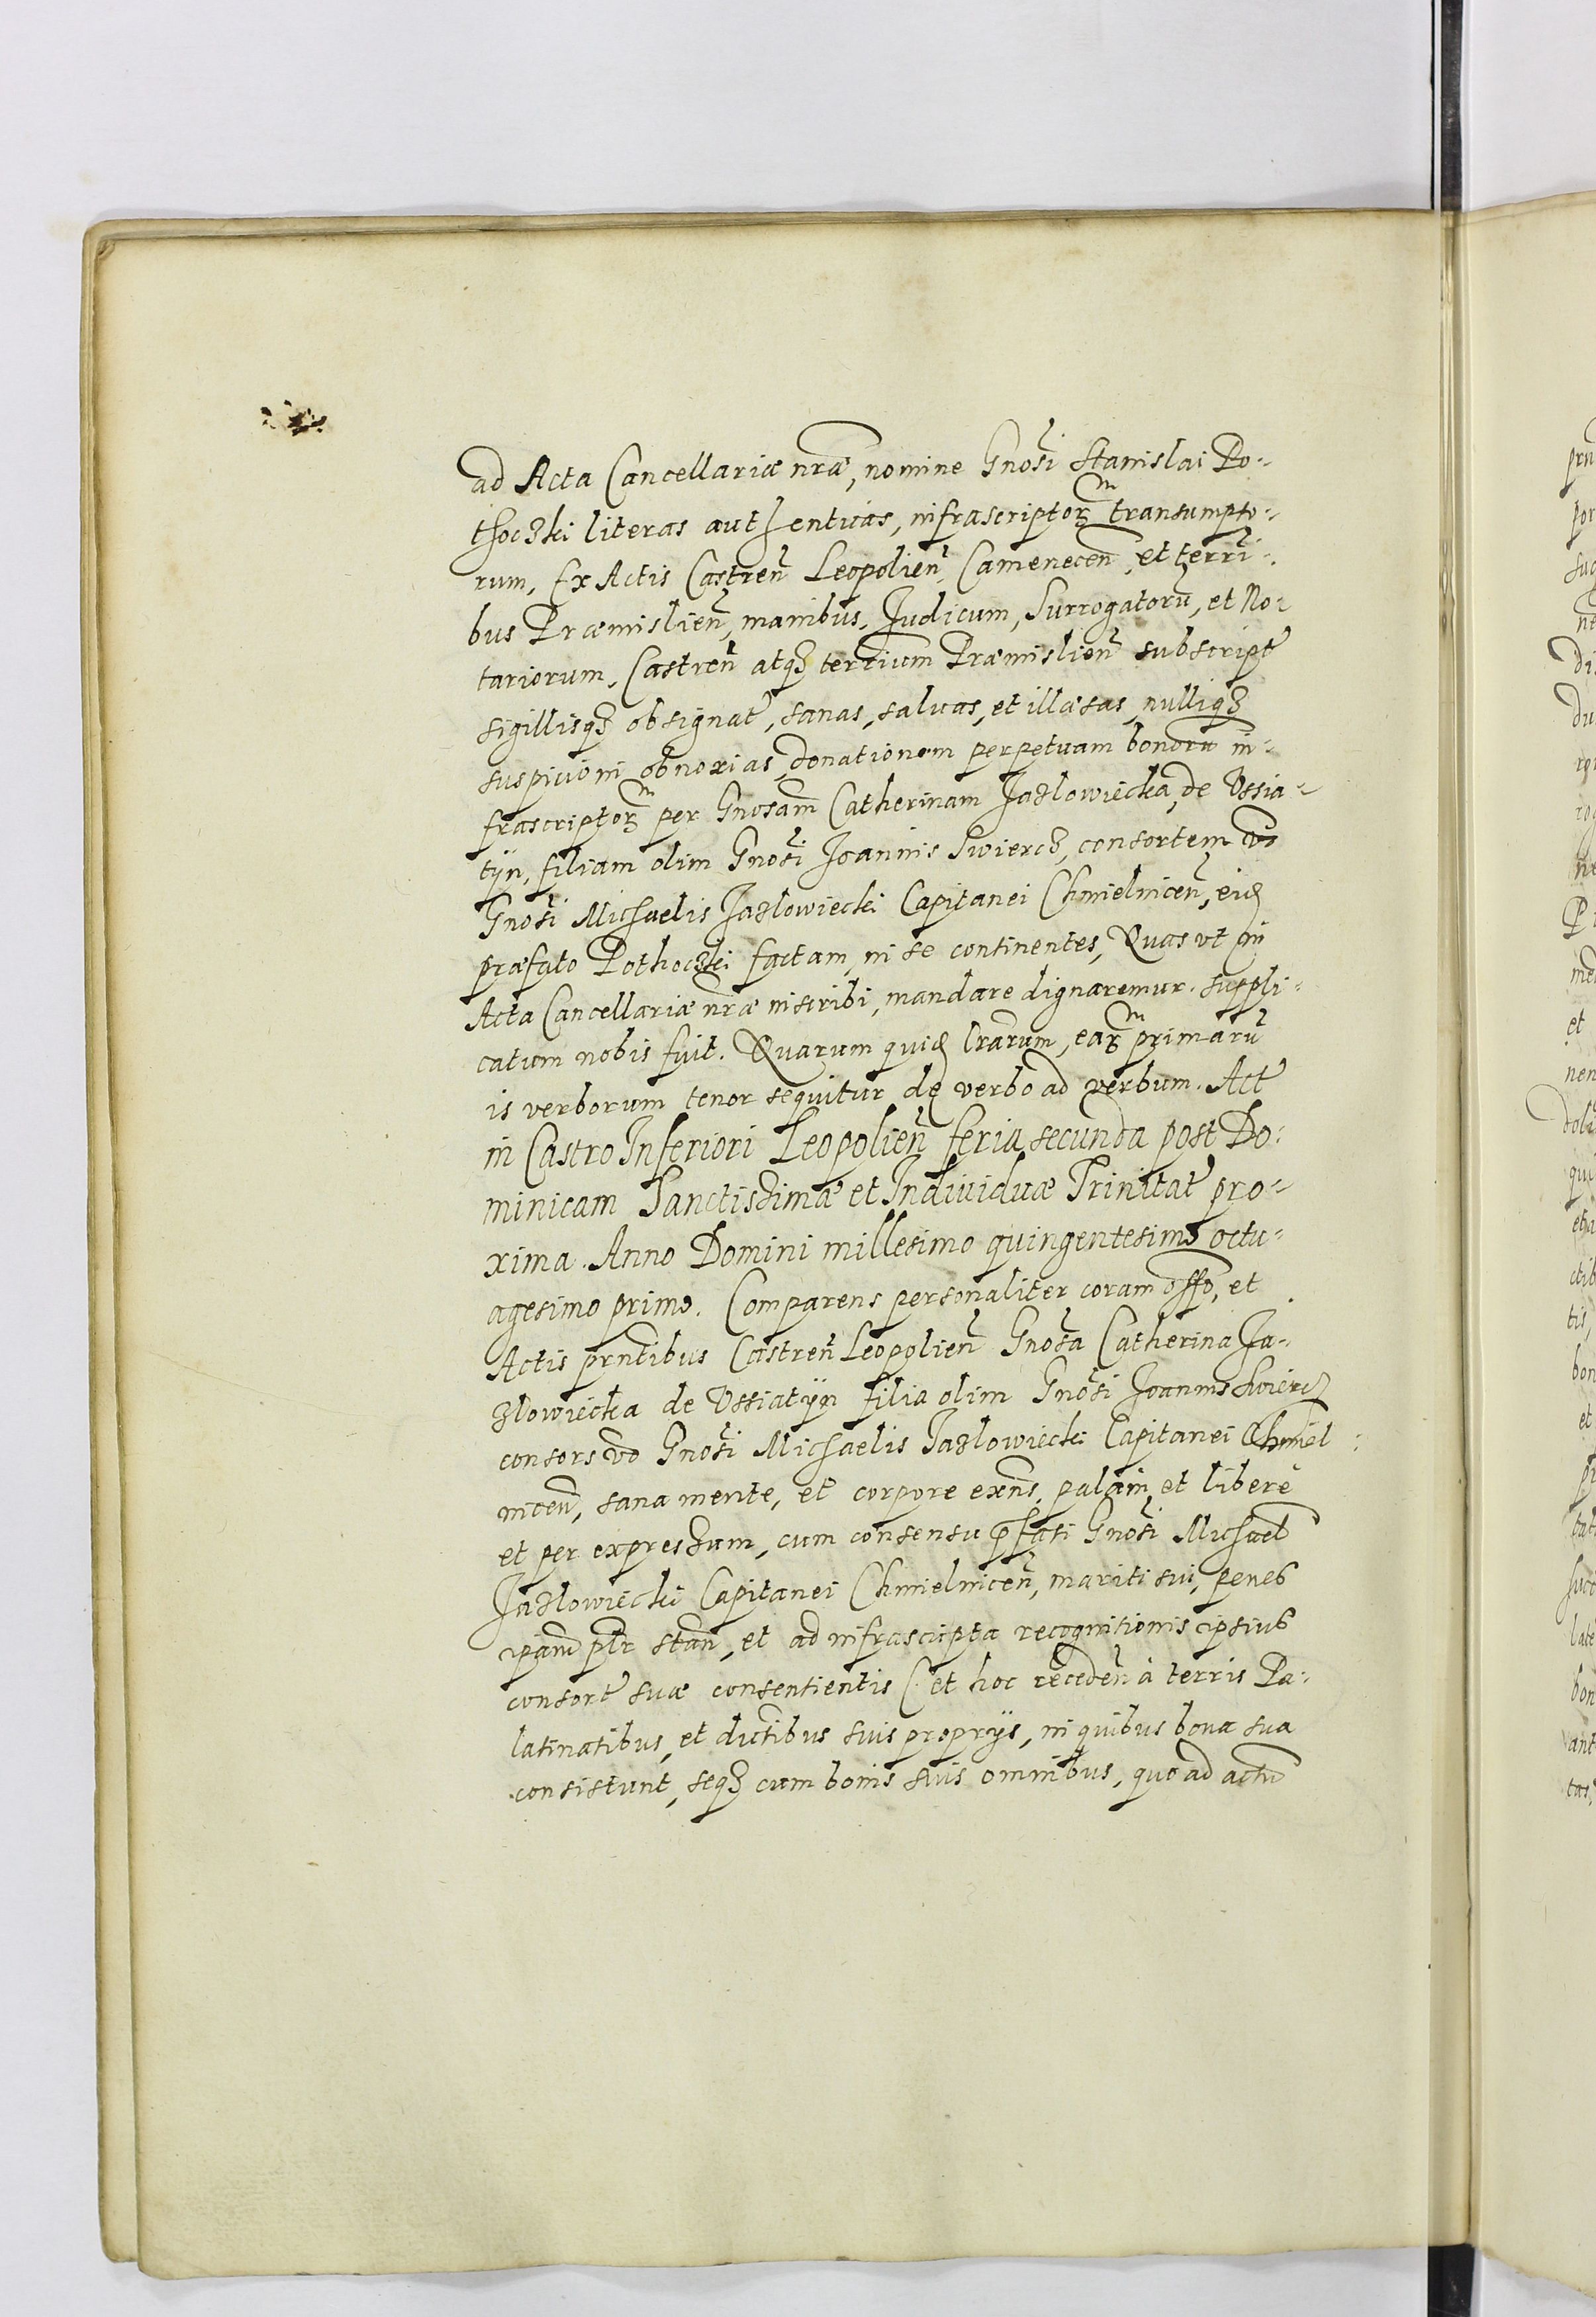 ad Acta Cancellariæ nr̃æ, nomine Gnosi Stanislai Po-
thoczki literas authenticas, infrascriptorum transumpto-
rum, Ex Actis Castren̄ Leopolien̄, Camenecen̄, et terri-
bus Præmislien̄, manibus, Judicum, Surrogatorū, et No-
tariorum, Castren̄ atqȝ terrium Præmislien̄ subscript
sigillisqȝ obsignat, sanas, saluas, et illæsas, nulliqȝ
suspicioni obnoxias, donationem perpetuam bonorū in-
frascriptorum per Gnosam Catherinam Jazlowiecka, de Ussia-
tÿn, filiam olim Gnosi Joannis Swiercz, consortem vo
Gnosi Michaelis Jazlowiecki Capitanei Chmielnicen̄, eid
præfato Pothoczki factam, in se continentes, Quas vt in
Acta Cancellariæ nr̃æ inscribi, mandare dignaremur. suppli-
catum nobis fuit. Quarum quid lrarum, earum primarū
is verborum tenor sequitur de verbo ad verbum. Act
in Castro Inferiori Leopolien̄ feria secunda post Do-
minicam Sanctissimæ et Indiuiduæ Trinitat pro-
xima. Anno Domini millesimo quingentesimo octu-
agesimo primo. Comparens personaliter coram offo, et
Actis prntibus Castren̄ Leopolien̄ Gnosa Catherina Ja-
zlowiecka de Ussiatÿn filia olim Gnosi Joannis Swiercz
consors vo Gnosi Michaelis Jazlowiecki Capitanei Chmiel-
nicen̄, sana mente, et corpore exns, palam, et liberè
et per expressum, cum consensu p̄fati Gnosi Michael
Jazlowiecki Capitanei Chmielnicen̄, mariti sui, penes
ipam ptr stan̄, et ad infrascripta recognitionis ipsius
consort suæ consentientis (et hoc receden̄ à terris Pa-
latinatibus, et dictibus suis proprÿs, in quibus bona sua
consistunt, seqȝ cum bonis suis omnibus, quo ad actū